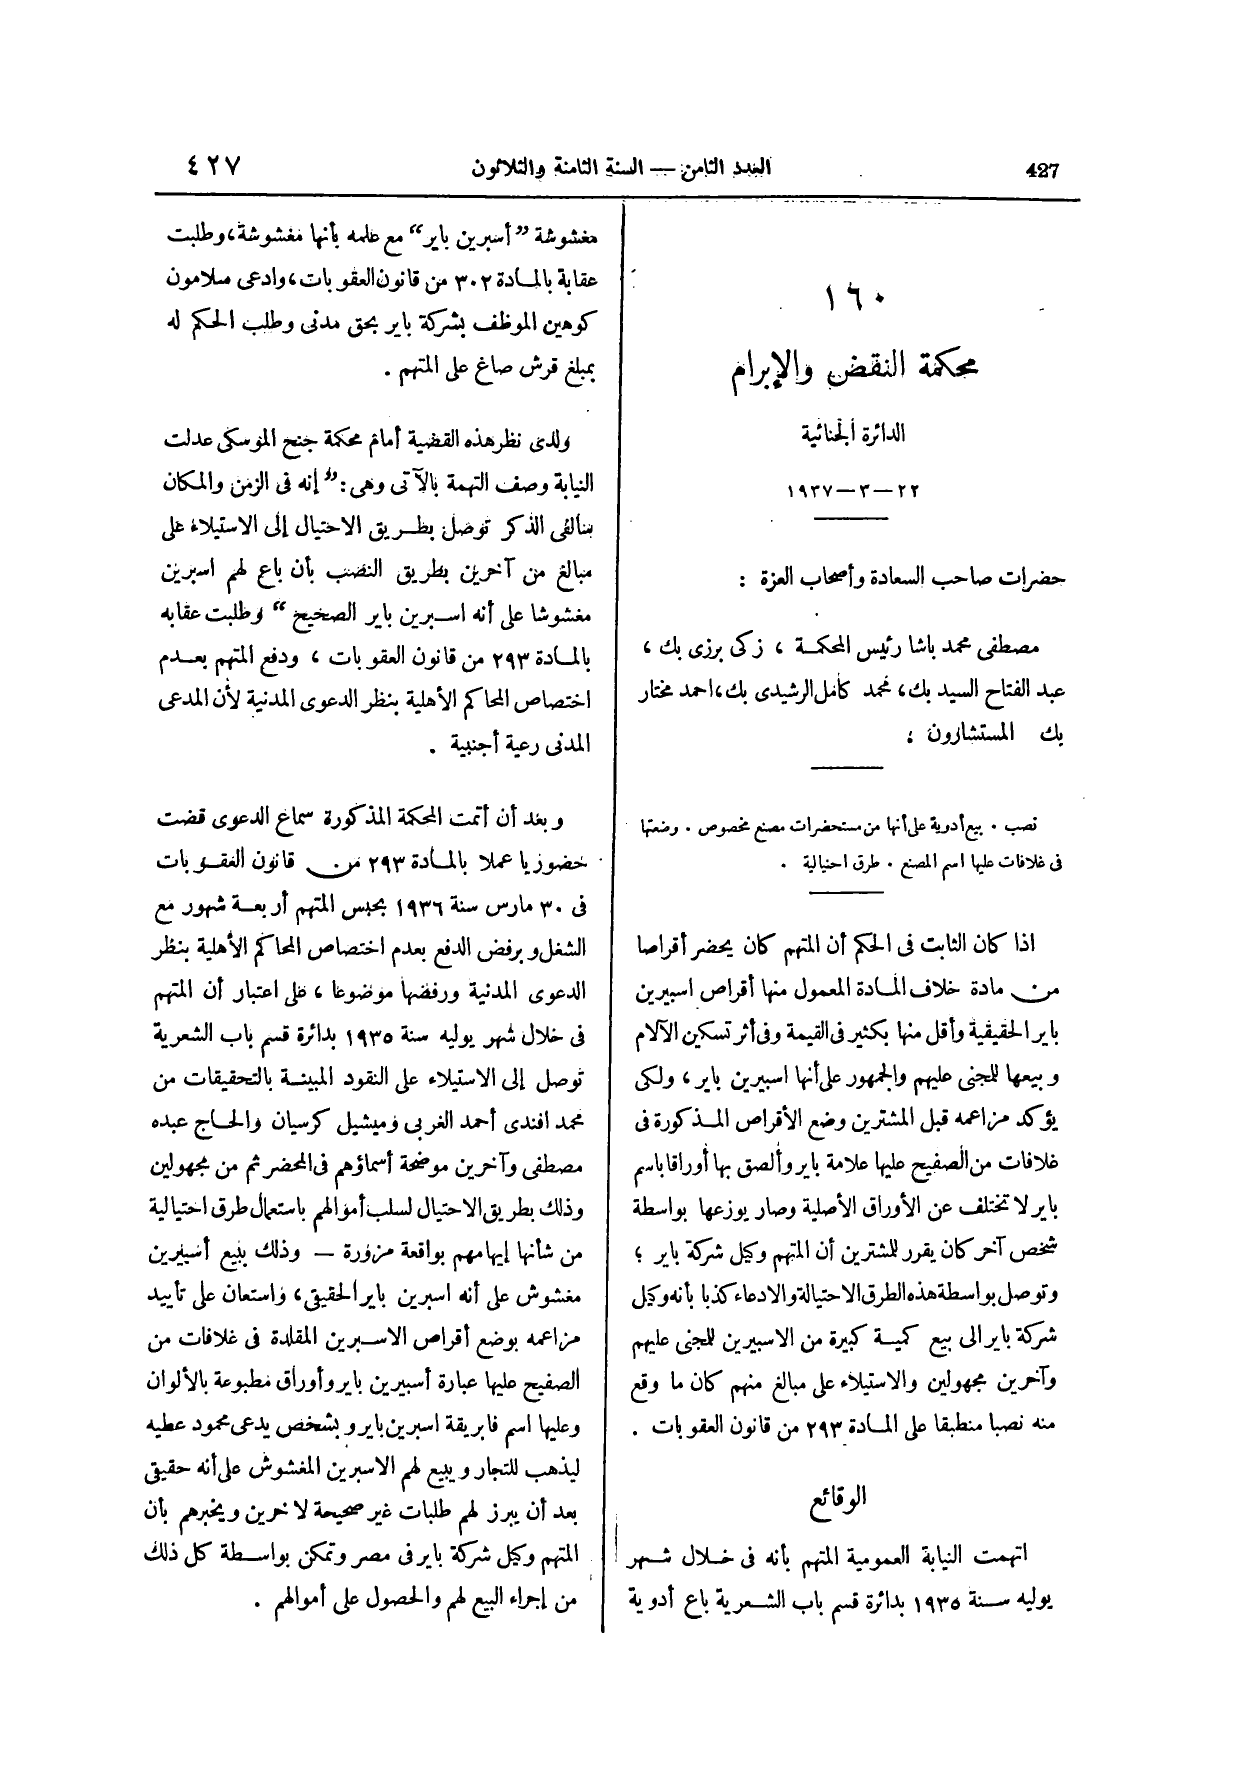 427
العدد الثامن — السنة الثامنة والثلاثون
٤٢٧
١٦٠
محكمة النقض والإبرام
الدائرة الجنائية
٢٢ — ٣ — ١٩٣٧
حضرات صاحب السعادة وأصحاب العزة :
مصطفى محمد باشا رئيس المحكمة ، زكى برزى بك ،
عبد الفتاح السيد بك، محمد كامل الرشيدى بك، احمد مختار
بك المستشارون ؛
نصب . بيع أدوية على أنها من مستحضرات مصنع مخصوص . وضعها
فى غلافات عليها اسم المصنع . طرق احتيالية .
اذا كان الثابت فى الحكم أن المتهم كان يحضر أقراصا
من مادة خلاف المادة المعمول منها أقراص اسبيرين
باير الحقيقية وأقل منها بكثير فى القيمة وفى أثر تسكين الآلام
و يبيعها للمجنى عليهم والجمهور على أنها اسبيرين باير ، ولكى
يؤكد مزاعمه قبل المشترين وضع الأقراص المذكورة فى
غلافات من الصفيح عليها علامة باير وألصق بها أوراقا باسم
باير لا تختلف عن الأوراق الأصلية وصار يوزعها بواسطة
شخص آخر كان يقرر للمشترين أن المتهم وكيل شركة باير ؛
وتوصل بواسطة هذه الطرق الاحتيالة والادعاء كذبا بأنه وكيل
شركة باير الى بيع كمية كبيرة من الاسبيرين للمجنى عليهم
وآخرين مجهولين والاستيلاء على مبالغ منهم كان ما وقع
منه نصبا منطبقا على المادة ٢٩٣ من قانون العقوبات .
الوقائع
اتهمت النيابة العمومية المتهم بأنه فى خلال شهر
يوليه سنة ١٩٣٥ بدائرة قسم باب الشعرية باع أدوية
مغشوشة ”أسبرين باير“ مع علمه بأنها مغشوشة، وطلبت
عقابة بالمادة ٣٠٢ من قانون العقوبات، وادعى سلامون
كوهين الموظف بشركة باير بحق مدنى وطلب الحكم له
بمبلغ قرش صاغ على المتهم .
ولدى نظر هذه القضية أمام محكمة جنح الموسكى عدلت
النيابة وصف التهمة بالآتى وهى: ”إنه فى الزمن والمكان
سالفى الذكر توصل بطريق الاحتيال إلى الاستيلاء على
مبالغ من آخرين بطريق النصب بأن باع لهم اسبرين
مغشوشا على أنه اسبرين باير الصحيح“ وطلبت عقابه
بالمادة ٢٩٣ من قانون العقوبات ، ودفع المتهم بعدم
اختصاص المحاكم الأهلية بنظر الدعوى المدنية لأن المدعى
المدنى رعية أجنبية .
و بعد أن أتمت المحكمة المذكورة سماع الدعوى قضت
حضوريا عملا بالمادة ٢٩٣ من قانون العقوبات
فى ٣٠ مارس سنة ١٩٣٦ بحبس المتهم أربعة شهور مع
الشغل و برفض الدفع بعدم اختصاص المحاكم الأهلية بنظر
الدعوى المدنية ورفضها موضوعا ، على اعتبار أن المتهم
فى خلال شهر يوليه سنة ١٩٣٥ بدائرة قسم باب الشعرية
توصل إلى الاستيلاء على النقود المبينة بالتحقيقات من
محمد افندى أحمد الغربى وميشيل كرسيان والحاج عبده
مصطفى وآخرين موضحة أسماؤهم فى المحضر ثم من مجهولين
وذلك بطريق الاحتيال لسلب أموالهم باستعمال طرق احتيالية
من شأنها إيهامهم بواقعة مزورة — وذلك ببيع أسبيرين
مغشوش على أنه اسبرين باير الحقيقى، واستعان على تأييد
مزاعمه بوضع أقراص الاسبرين المقلدة فى غلافات من
الصفيح عليها عبارة أسبيرين باير وأوراق مطبوعة بالألوان
وعليها اسم فابريقة اسبرين باير و بشخص يدعى محمود عطيه
ليذهب للتجار و يبيع لهم الاسبرين المغشوش على أنه حقيقى
بعد أن يبرز لهم طلبات غير صحيحة لاخرين و يخبرهم بأن
المتهم وكيل شركة باير فى مصر وتمكن بواسطة كل ذلك
من إجراء البيع لهم والحصول على أموالهم .